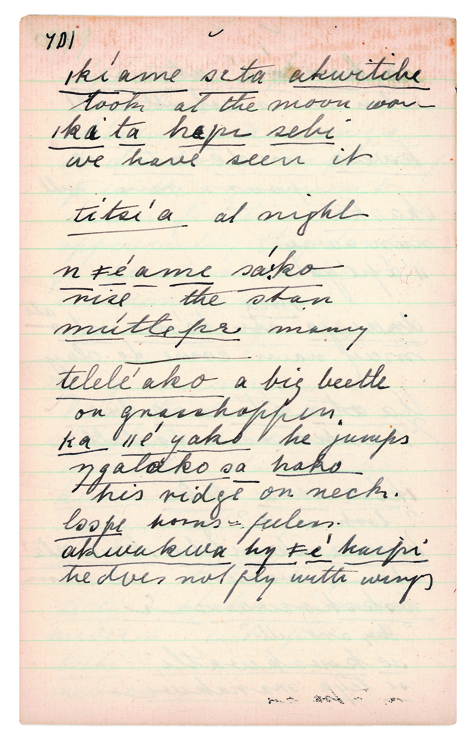 701
ǀkíame seta akwitihe
look at the moon wor-
ǀka ta hapi sebi
we have seen it
títsí'a at night
n ǂéame sá:ko
rise the star
mútlepe many
telelé ako a big beetle
or grasshopper
ka ǁé yako he jumps
ŋgatako sa hako
his ridge on neck.
lospe horns = feelers.
akwakwa hy ǂé haipi
he does not fly with wings